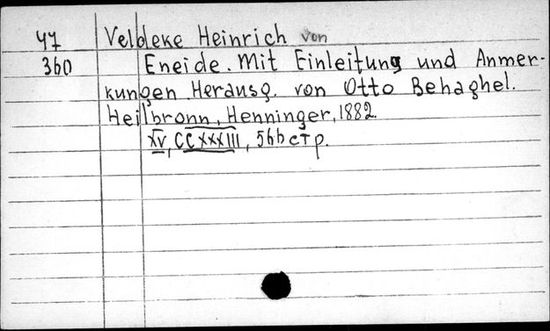 47 Veldeke Heinrich von
360 Eneide. Mit Einleitung und Anmer-
kungen Herausg. von Otto Behaghel.
Heilbronn, Henninger, 1882
XV, CCXXXIII, 566 стр.